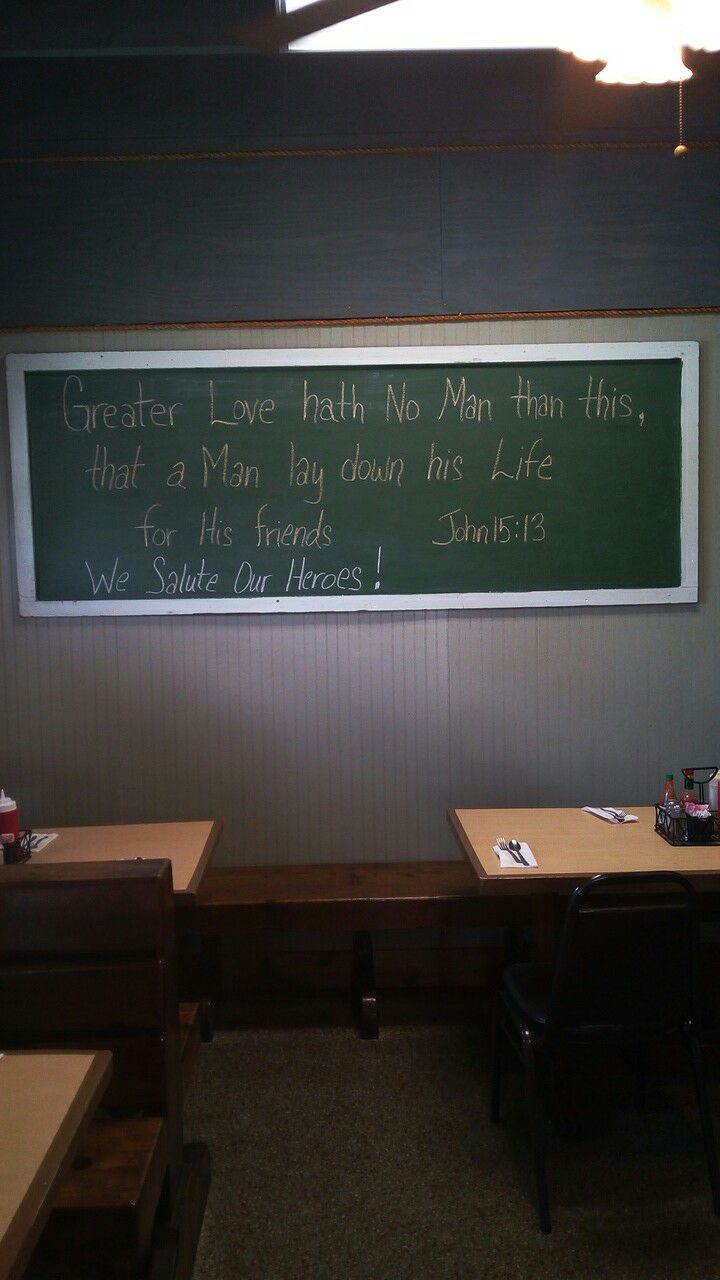 Greater Love hath No Man than this,
that a Man lay down his Life
for His friends John 15:13
We Salute Our Heroes!